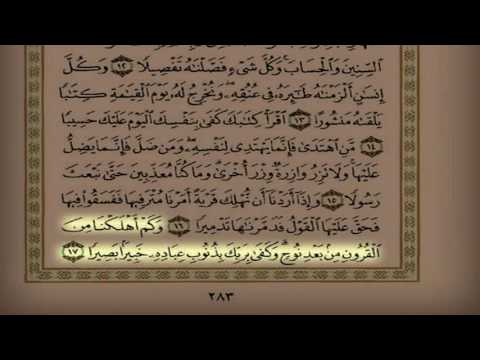 السِّنِينَ وَالْحِسَابَ وَكُلَّ شَيْءٍ فَصَّلْنَاهُ تَفْصِيلًا ١٢ وَكُلَّ
إِنسَانٍ أَلْزَمْنَاهُ طَائِرَهُ فِي عُنُقِهِ وَنُخْرِجُ لَهُ يَوْمَ الْقِيَامَةِ كِتَابًا
يَلْقَاهُ مَنشُورًا ١٣ اقْرَأْ كِتَابَكَ كَفَى بِنَفْسِكَ الْيَوْمَ عَلَيْكَ حَسِيبًا
١٤ مَّنِ اهْتَدَى فَإِنَّمَا يَهْتَدِي لِنَفْسِهِ وَمَن ضَلَّ فَإِنَّمَا يَضِلُّ
عَلَيْهَا وَلَا تَزِرُ وَازِرَةٌ وِزْرَ أُخْرَى وَمَا كُنَّا مُعَذِّبِينَ حَتَّى نَبْعَثَ
رَسُولًا ١٥ وَإِذَا أَرَدْنَا أَن نُّهْلِكَ قَرْيَةً أَمَرْنَا مُتْرَفِيهَا فَفَسَقُوا فِيهَا
فَحَقَّ عَلَيْهَا الْقَوْلُ فَدَمَّرْنَاهَا تَدْمِيرًا ١٦ وَكَمْ أَهْلَكْنَا مِنَ
الْقُرُونِ مِن بَعْدِ نُوحٍ وَكَفَى بِرَبِّكَ بِذُنُوبِ عِبَادِهِ خَبِيرًا بَصِيرًا ١٧
٢٨٣